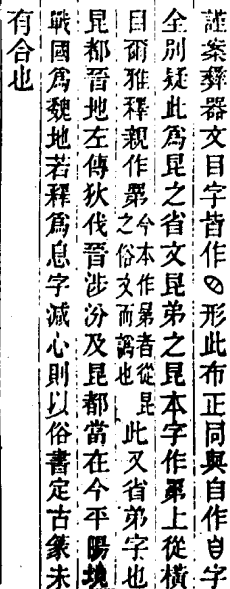 謹案彝器文目字皆作形此布正同與自作自字
全别疑此為昆之省文昆弟之昆本字作𦋺上從橫
目爾雅釋親作𦋺今本作晜者從昆之俗文而譌也此又省弟字也
昆都晉地左傳狄伐晉涉汾及昆都當在今平陽境
戰國為魏地若釋為息字減心則以俗書定古篆未
有合也